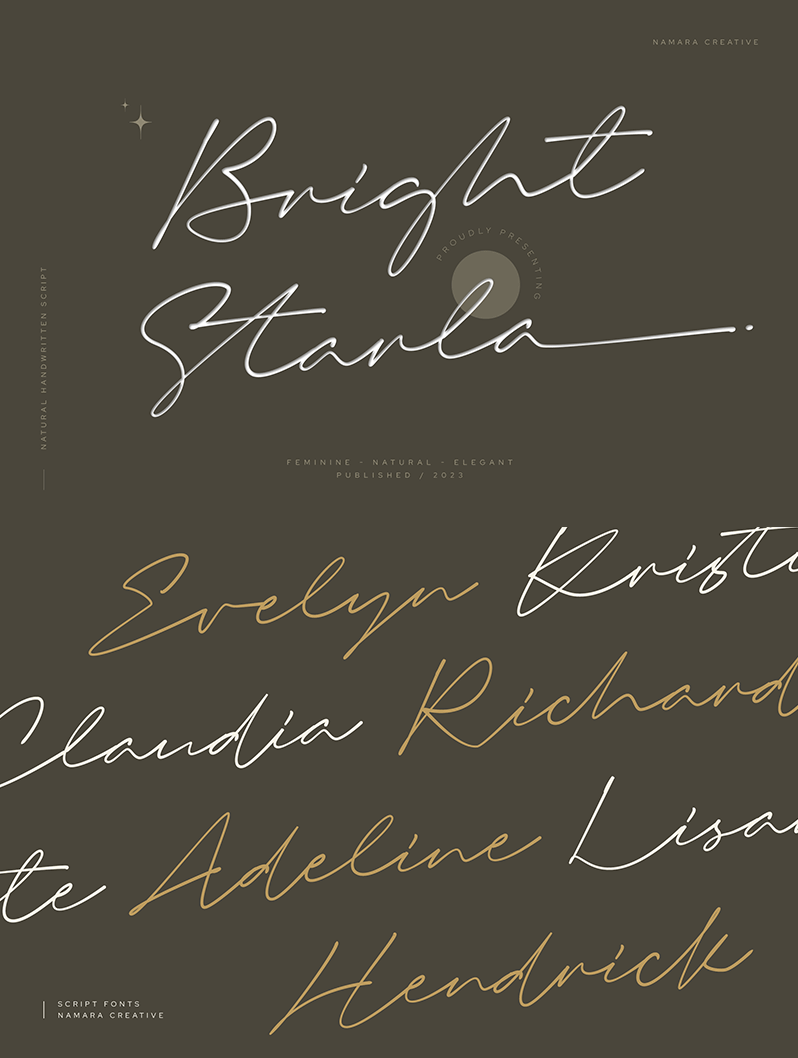 NAMARA CREATIVE
Bright
PROUDLY PRESENTING
Starla
NATURAL HANDWRITTEN SCRIPT
FEMININE - NATURAL - ELEGANT
PUBLISHED / 2023
Evelyn Kristi
Claudia Richard
te Adeline Lisa
Hendrick
SCRIPT FONTS
NAMARA CREATIVE